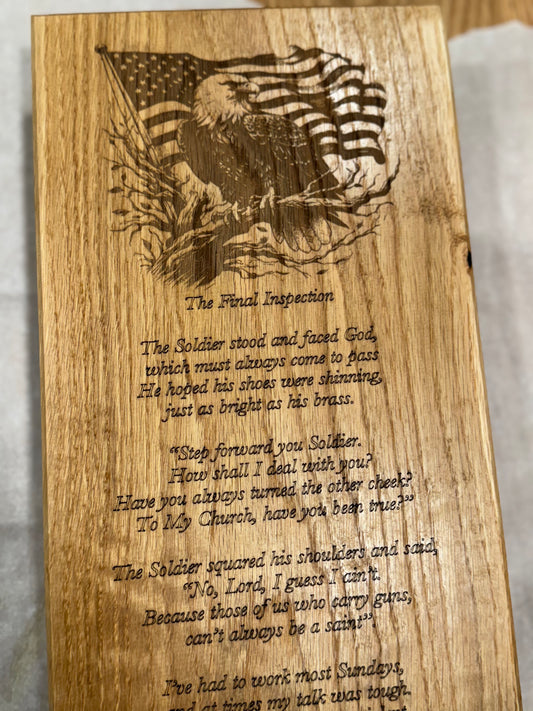 The Final Inspection
The Soldier stood and faced God,
which must always come to pass
He hoped his shoes were shinning,
just as bright as his brass.
"Step forward you Soldier.
How shall I deal with you?
Have you always turned the other cheek?
To My Church, have you been true?"
The Soldier squared his shoulders and said,
"No, Lord, I guess I ain't.
Because those of us who carry guns,
can't always be a saint".
I've had to work most Sundays,
and at times my talk was tough.